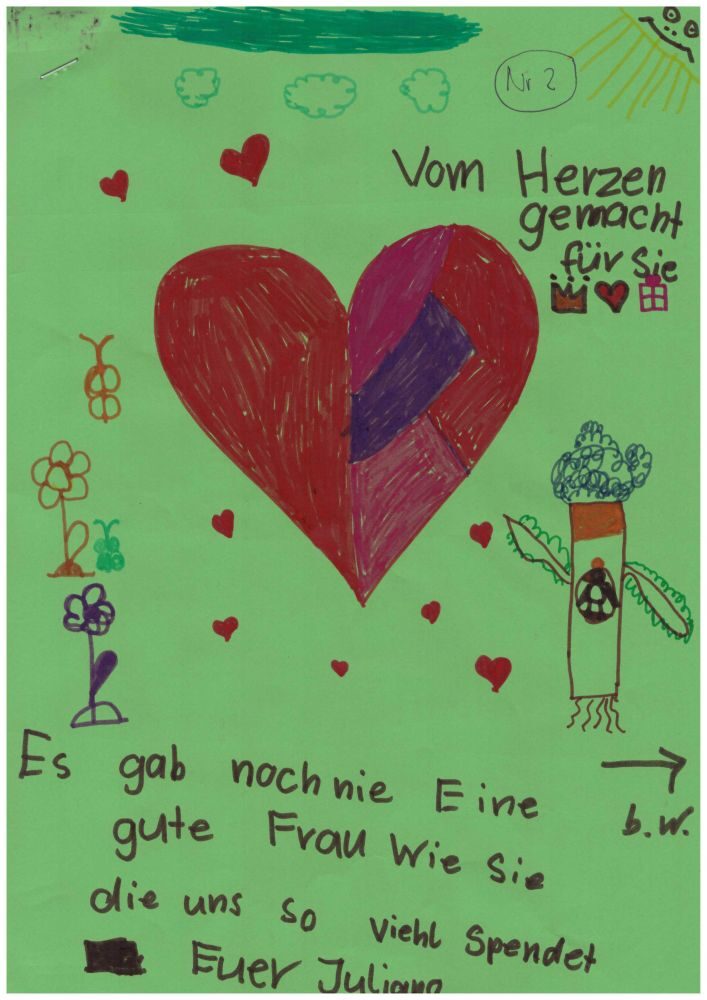 Nr 2
Vom Herzen
gemacht
für Sie
Es gab noch nie Eine
gute Frau Wie Sie
b.w.
die uns so viehl Spendet
Euer Juliano